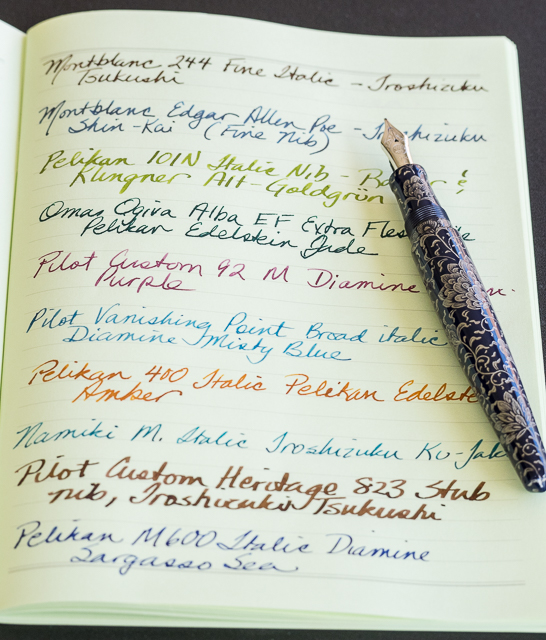 Montblanc 244 Fine Italic - Iroshizuku
Tsukushi
Montblanc Edgar Allen Poe - Iroshizuku
Shin-Kai (Fine Nib)
Pelikan 101N Italic Nib - &
Klingner Alt-Goldgrün
Omas Ogiva Alba EF Extra
Pelikan Edelstein Jade
Pilot Custom 92 M Diamine
Purple
Pilot Vanishing Point Broad italic
Diamine Misty Blue
Pelikan 400 Italic Pelikan
Amber
Namiki M. Italic Iroshizuku
Pilot Custom Heritage 823 Stub
nib, Iroshizuku Tsukushi
Pelikan M600 Italic Diamine
Sargasso Sea